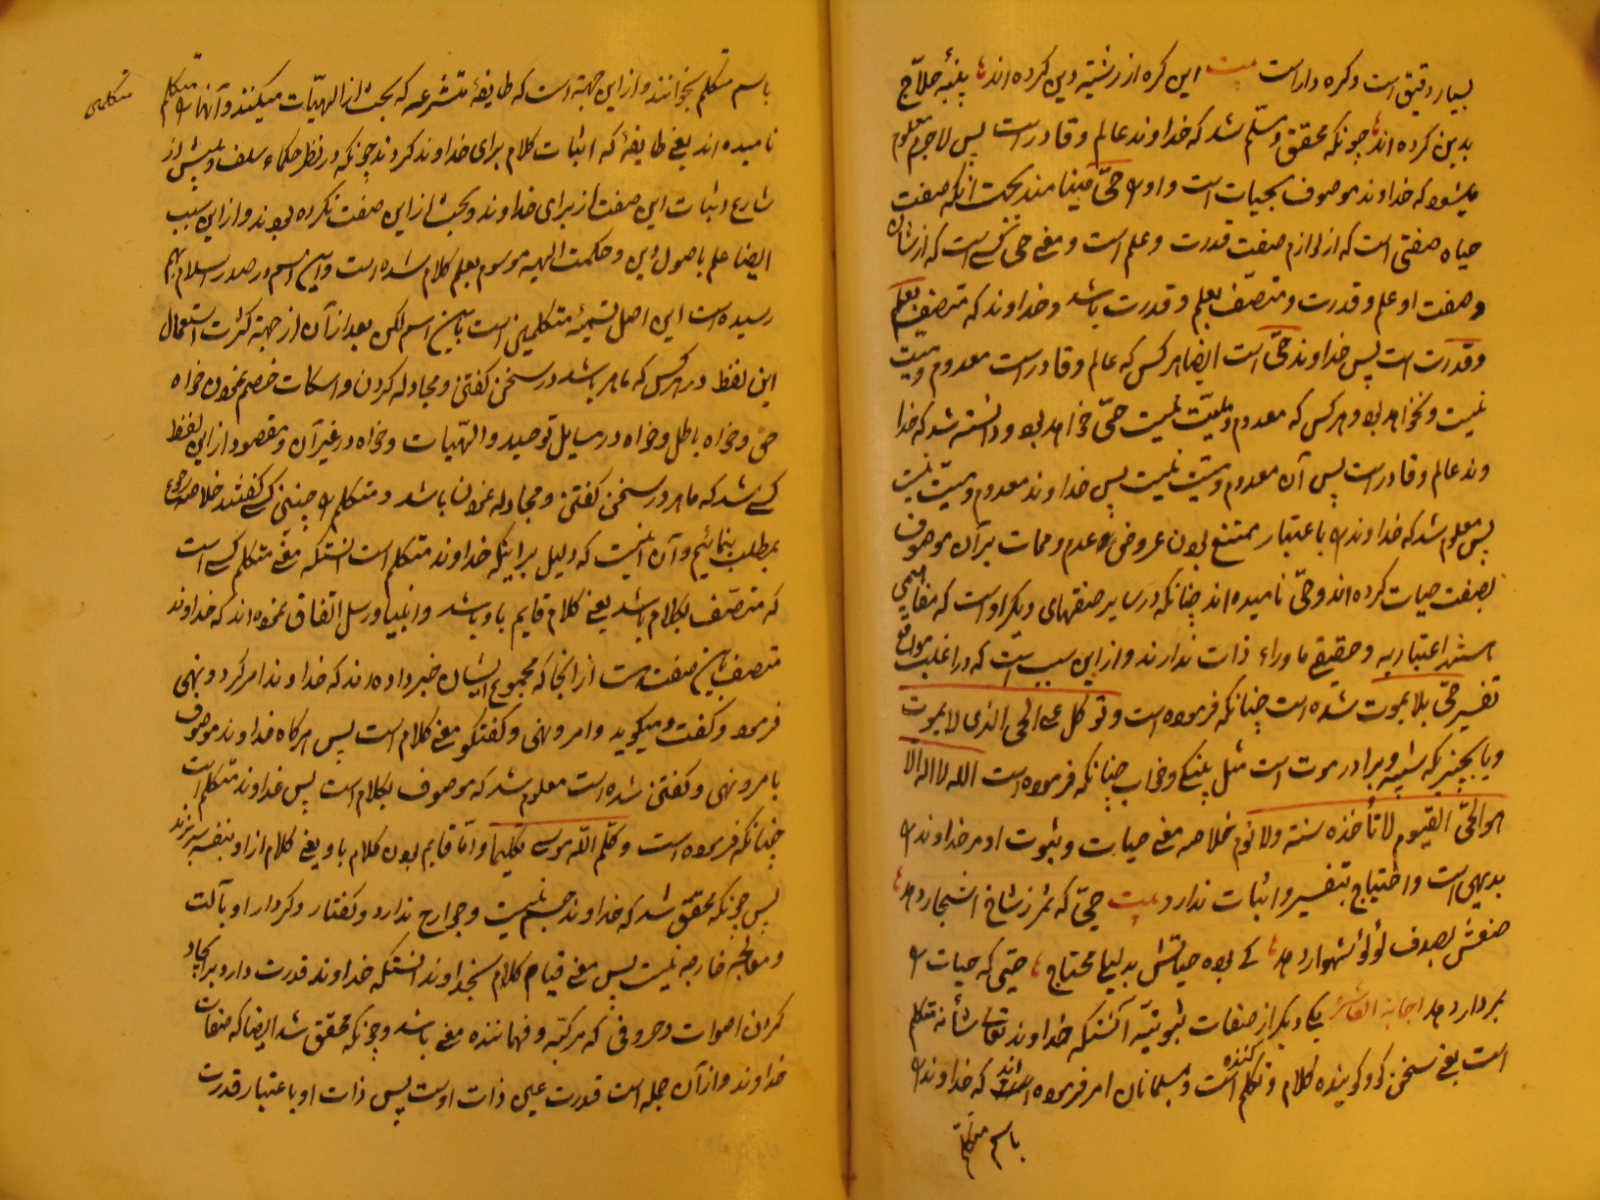 بسیار دقیق است و کره دار است بیت این کره از رشته دین کرده اند پنبه حلاج
بدین کرده اند چونکه محقق و مسلم شد که خداوند عالم و قادر است پس لاجرم معلوم
میشود که خداوند موصوف بحیات است و او را حیّ مینامند بجهت آنکه صفت
حیاه صفتی است که از لوازم صفت قدرت و علم است و معنی حی کسی است که از شان
و صفت او علم و قدرت و متصف بعلم و قدرت باشد و خداوند که متصف بعلم
و قدرت است پس خداوند حیّ است ایضا هر کس که عالم و قادر است معدوم و میت
نیست و نخواهد بود و هر کس که معدوم و میت نیست حیّ خواهد بود و دانسته شد که خدا
وند عالم و قادر است پس آن معدوم و میت نیست پس خداوند معدوم و میت نیست
پس معلوم شد که خداوند را باعتبار ممتنع بودن عروض عدم و ممات بر آن موصوف
بصفت حیات کرده اند و حیّ نامیده اند چنانکه در سایر صفتهای دیگر او است که مفاهیمی
هستند اعتباریه و حقیقتی ماوراء ذات ندارند و از این سبب است که در اغلب مواقع
تفسیر حیّ بلا یموت شده است چنانکه فرموده است و توکل علی الحی الذی لا یموت
و یا بچیزیکه شبیه و برادر موت است مثل پینکی و خواب چنانکه فرموده است الله لا اله الا
هو الحیّ القیوم لا تأخذه سنة ولا نوم خلاصه معنی حیات و ثبوت او مر خداوند را
بدیهی است و احتیاج بتفسیر و اثبات ندارد بیت حیّ که ثمر ز شاخ اشجار دهد
صنعش بصدف لؤلؤ شهوار دهد کی بوده حیاتش بدلیلی محتاج حیّی که حیات را
بمردار دهد یکی دیگر از صفات ثبوتیه آنستکه خداوند تعالی شأنه متکلم
است یعنی سخن گو و گوینده کلام و تکلم کننده است و مسلمانان امر فرموده اند که خداوند را
باسم متکلم
باسم متکلم بخوانند و از این جهة است که طایفهٔ متشرعه که بحث از الهیّات میکنند و آنها را متکلم
متکلمین
نامیده اند یعنی طایفهٔ که اثبات کلام برای خداوند کردند چونکه در نظر حکماء سلف و پیش از
شارع اثبات این صفت از برای خداوند و بحث از این صفت نکرده بودند و از این سبب
ایضا علم باصول دین و حکمت الهیه موسوم بعلم کلام شده است و این اسم در صدر اسلام بهم
رسیده است این اصل تسمیهٔ متکلمین است باین اسم لکن بعد از آن از جهة کثرت استعمال
این لفظ در هر کس که ماهر باشد در سخن گفتن و مجادله کردن و اسکات خصم نمودن خواه
حق و خواه باطل و خواه در مسایل توحید و الهیات و خواه در غیر آن و مقصود از این لفظ
کسی شد که ماهر در سخن گفتن و مجادله نمودن باشد و متکلم را چنین کسی گفتند خلاصه رجوع
بمطلب بنمائیم و آن اینست که دلیل بر اینکه خداوند متکلم است اینستکه معنی متکلم کسی است
که متصف بکلام باشد یعنی کلام قایم باو باشد و انبیا و رسل اتفاق نموده اند که خداوند
متصف باین صفت است از آنجا که مجموع ایشان خبر داده اند که خداوند امر کرد و نهی
فرمود و گفت و میگوید و امر و نهی و گفتگو معنی کلام است پس هرگاه خداوند موصوف
بامر و نهی و گفتن شده است معلوم شد که موصوف بکلام است پس خداوند متکلم است
چنانکه فرموده است و کلّم الله موسی تکلیما و امّا قایم بودن کلام باو یعنی کلام از او بنفسه سر بزند
پس چونکه محقق شد که خداوند جسم نیست و جوارح ندارد و گفتار و کردار او بآلت
و معالجه خارجیه نیست پس معنی قیام کلام بخداوند اینستکه خداوند قدرت دارد بر ایجاد
کردن اصوات و حروفی که مرکبّه و فهماننده معنی باشد و چونکه محقق شد ایضا که صفات
خداوند و از آن جمله است قدرت عین ذات اوست پس ذات او باعتبار قدرت